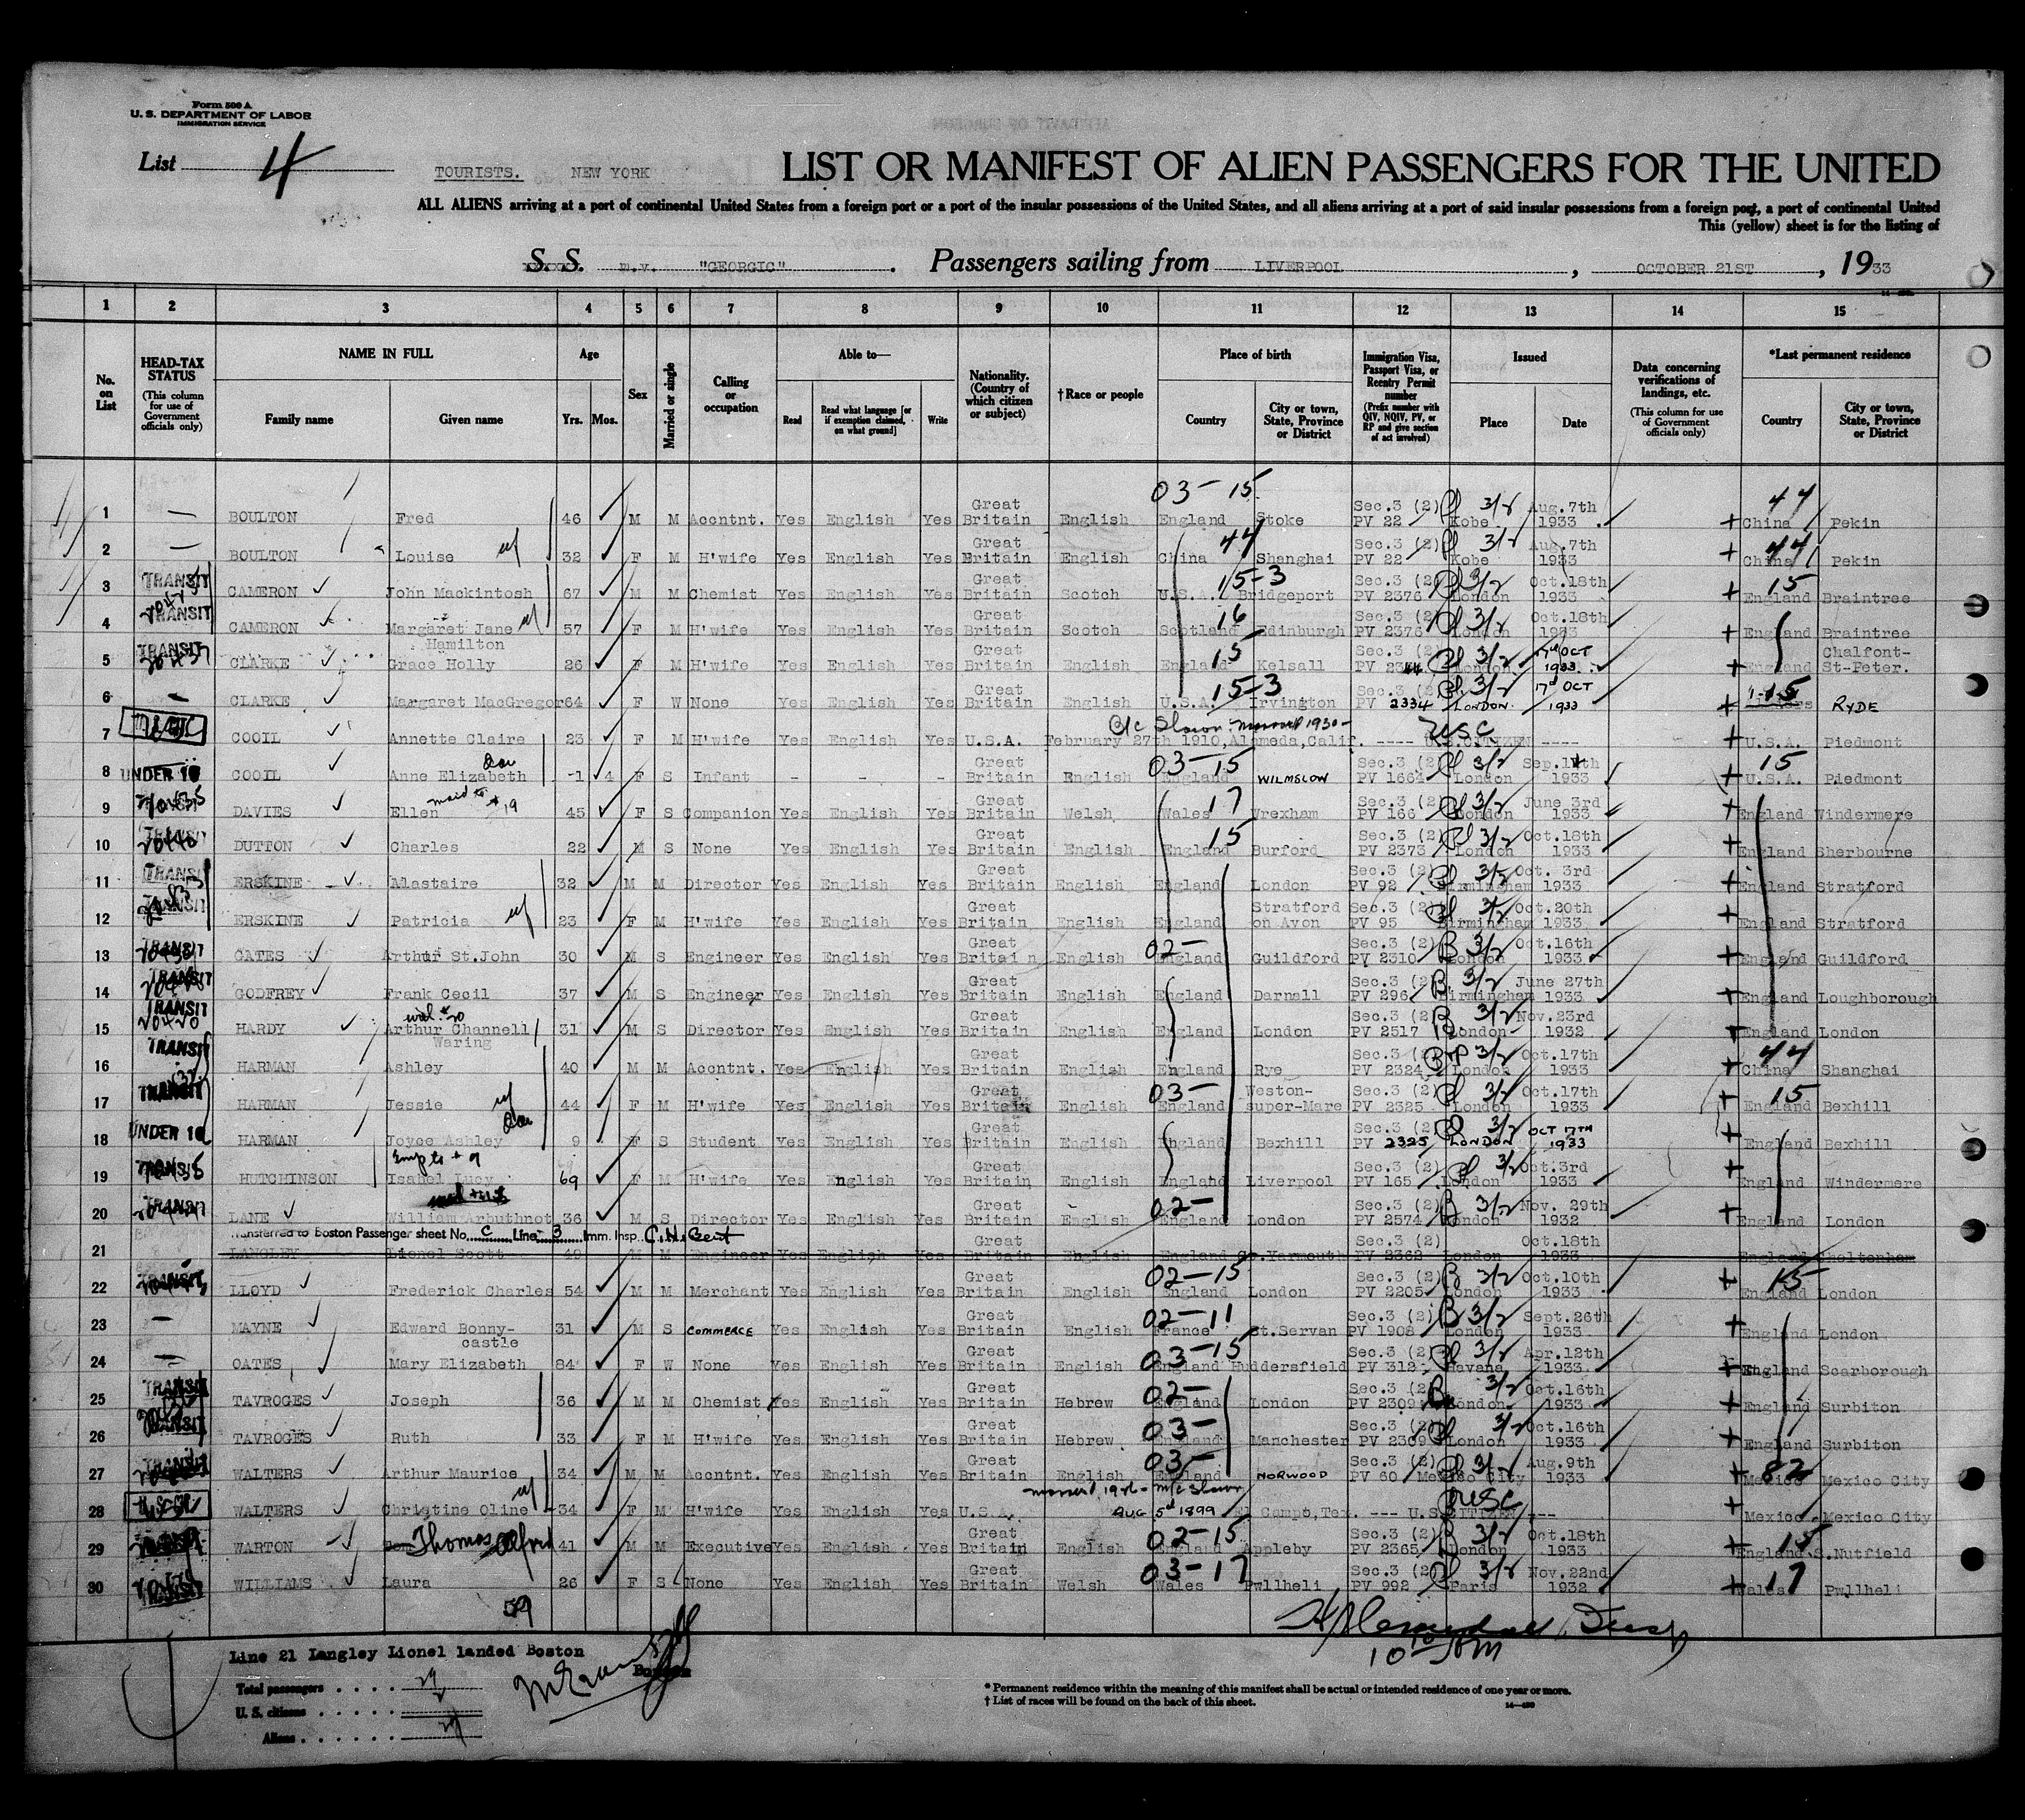 Form 500 A
U. S. DEPARTMENT OF LABOR
IMMIGRATION SERVICE
List 4 TOURISTS. NEW YORK LIST OR MANIFEST OF ALIEN PASSENGERS FOR THE UNITED
ALL ALIENS arriving at a port of continental United States from a foreign port or a port of the insular possessions of the United States, and all aliens arriving at a port of said insular possessions from a foreign port, a port of continental United
This (yellow) sheet is for the listing of
S. S. m.v. "GEORGIC" . Passengers sailing from LIVERPOOL , OCTOBER 21ST , 1933
1 2 3 4 5 6 7 8 9 10 11 12 13 14 15
No. on List
HEAD-TAX STATUS (This column for use of Government officials only)
NAME IN FULL Family name Given name
Age Yrs. Mos.
Sex
Married or single
Calling or occupation
Able to— Read Read what language [or if exemption claimed, on what ground] Write
Nationality. (Country of which citizen or subject)
†Race or people
Place of birth Country City or town, State, Province or District
Immigration Visa, Passport Visa, or Reentry Permit number (Prefix number with QIV, NQIV, PV, or RP and give section of act involved)
Issued Place Date
Data concerning verifications of landings, etc. (This column for use of Government officials only)
*Last permanent residence Country City or town, State, Province or District
03-15 44
1 — BOULTON Fred 46 M M Accntnt. Yes English Yes Great Britain English England Stoke Sec.3 (2) PV 22 3/2 Kobe Aug.7th 1933 China Pekin
2 — BOULTON Louise w/ 32 F M H'wife Yes English Yes Great Britain English China 44 Shanghai Sec.3 (2) PV 22 3/2 Kobe Aug.7th 1933 China 44 Pekin
3 TRANSIT CAMERON John Mackintosh 67 M M Chemist Yes English Yes Great Britain Scotch U.S.A. 15-3 Bridgeport Sec.3 (2) PV 2376 3/2 London Oct.18th 1933 England 15 Braintree
4 TRANSIT CAMERON Margaret Jane Hamilton w/ 57 F M H'wife Yes English Yes Great Britain Scotch Scotland 16 Edinburgh Sec.3 (2) PV 2376 3/2 London Oct.18th 1933 England Braintree
5 TRANSIT CLARKE Grace Holly 26 F M H'wife Yes English Yes Great Britain English England 15 Kelsall Sec.3 (2) 3/2 London 17th OCT 1933 England Chalfont-St-Peter.
6 — CLARKE Margaret MacGregor 64 F W None Yes English Yes Great Britain English U.S.A. 15-3 Irvington Sec.3 (2) PV 2334 3/2 LONDON 17th OCT 1933 15 RYDE
B/c Shown married 1930- USC
7 COOIL Annette Claire 23 F M H'wife Yes English Yes U.S.A. February 27th 1910, Alameda, Calif. ---- U.S.CITIZEN ---- U.S.A. Piedmont
8 UNDER 16 COOIL Anne Elizabeth Dau -1 4 F S Infant - - - Great Britain English England 03-15 WILMSLOW Sec.3 (2) PV 1664 3/2 London 1933 U.S.A. 15 Piedmont
9 DAVIES Ellen maid to #19 45 F S Companion Yes English Yes Great Britain Welsh Wales 17 Wrexham Sec.3 (2) PV 166 3/2 London June 3rd 1933 England Windermere
10 TRANSIT DUTTON Charles 22 M S None Yes English Yes Great Britain English England 15 Burford Sec.3 (2) PV 2373 3/2 London Oct.18th 1933 England Sherbourne
11 TRANSIT ERSKINE Alastaire 32 M M Director Yes English Yes Great Britain English England London Sec.3 (2) PV 92 3/2 Birmingham Oct. 3rd 1933 England Stratford
12 TRANSIT ERSKINE Patricia w/ 23 F M H'wife Yes English Yes Great Britain English England Stratford on Avon Sec.3 (2) PV 95 3/2 Birmingham Oct.20th 1933 England Stratford
13 TRANSIT GATES Arthur St.John 30 M S Engineer Yes English Yes Great Britain English England 02- Guildford Sec.3 (2) PV 2310 3/2 London Oct.16th 1933 England Guildford
14 TRANSIT GODFREY Frank Cecil 37 M S Engineer Yes English Yes Great Britain English England Darnall Sec.3 (2) PV 296 3/2 Birmingham June 27th 1933 England Loughborough
15 TRANSIT 20420 HARDY Arthur Channell Waring 31 M S Director Yes English Yes Great Britain English England London Sec.3 (2) PV 2517 3/2 London Nov.23rd 1932 England London
16 TRANSIT HARMAN Ashley 40 M M Accntnt. Yes English Yes Great Britain English England Rye Sec.3 (2) PV 2324 3/2 London Oct.17th 1933 China 44 Shanghai
17 TRANSIT HARMAN Jessie w/ 44 F M H'wife Yes English Yes Great Britain English England 03- Weston-super-Mare Sec.3 (2) PV 2325 3/2 London Oct.17th 1933 England 15 Bexhill
18 UNDER 16 HARMAN Joyce Ashley Dau 9 F S Student Yes English Yes Great Britain English England Bexhill Sec.3 (2) PV 2325 3/2 LONDON OCT 17TH 1933 England Bexhill
19 TRANSIT HUTCHINSON Isabel Lucy Emp to #9 69 F M H'wife Yes English Yes Great Britain English England Liverpool Sec.3 (2) PV 165 3/2 London Oct.3rd 1933 England Windermere
20 TRANSIT LANE William Arbuthnot 36 M S Director Yes English Yes Great Britain English England 02- London Sec.3 (2) PV 2574 3/2 London Nov. 29th 1932 England London
Transferred to Boston Passenger sheet No. C Line 3 Imm. Insp. C.H. Bent
21 LANGLEY Lionel Scott 49 M M Engineer Yes English Yes Britain English England Gt.Yarmouth Sec.3 (2) PV 2362 London Oct.18th 1933 England Cheltenham
22 TRANSIT LLOYD Frederick Charles 54 M M Merchant Yes English Yes Great Britain English England 02-15 London Sec.3 (2) PV 2205 3/2 London Oct.10th 1933 England 15 London
23 — MAYNE Edward Bonny-castle 31 M S COMMERCE Yes English Yes Great Britain English France 02-11 St.Servan Sec.3 (2) PV 1908 3/2 London Sept.26th 1933 England London
24 — OATES Mary Elizabeth 84 F W None Yes English Yes Great Britain English England 03-15 Huddersfield Sec.3 (2) PV 312 3/2 Havana Apr.12th 1933 England Scarborough
25 TRANSIT TAVROGES Joseph 36 M M Chemist Yes English Yes Great Britain Hebrew England 02- London Sec.3 (2) PV 2309 3/2 London Oct.16th 1933 England Surbiton
26 TRANSIT TAVROGES Ruth 33 F M H'wife Yes English Yes Great Britain Hebrew England 03- Manchester Sec.3 (2) PV 2309 3/2 London Oct.16th 1933 England Surbiton
27 TRANSIT WALTERS Arthur Maurice 34 M M Accntnt. Yes English Yes Great Britain English England 03- NORWOOD Sec.3 (2) PV 60 3/2 Mexico City Aug.9th 1933 Mexico 82 Mexico City
married 1926- M/C Shown USC
28 WALTERS Christine Oline w/ 34 F M H'wife Yes English Yes U.S.A. AUG 5th 1899 El Campo,Tex. --- U.S.CITIZEN --- Mexico Mexico City
29 WARTON Thomas Alfred 41 M M Executive Yes English Yes Great Britain English England 02-15 Appleby Sec.3 (2) PV 2365 3/2 London Oct.18th 1933 England 15 S.Nutfield
30 TRANSIT WILLIAMS Laura 26 F S None Yes English Yes Great Britain Welsh Wales 03-17 Pwllheli Sec.3 (2) PV 992 3/2 Paris Nov.22nd 1932 Wales 17 Pwllheli
59
Line 21 Langley Lionel landed Boston
Total passengers . . . . 29
U. S. citizens . . . . . 2
Aliens . . . . . . 27
* Permanent residence within the meaning of this manifest shall be actual or intended residence of one year or more.
† List of races will be found on the back of this sheet.